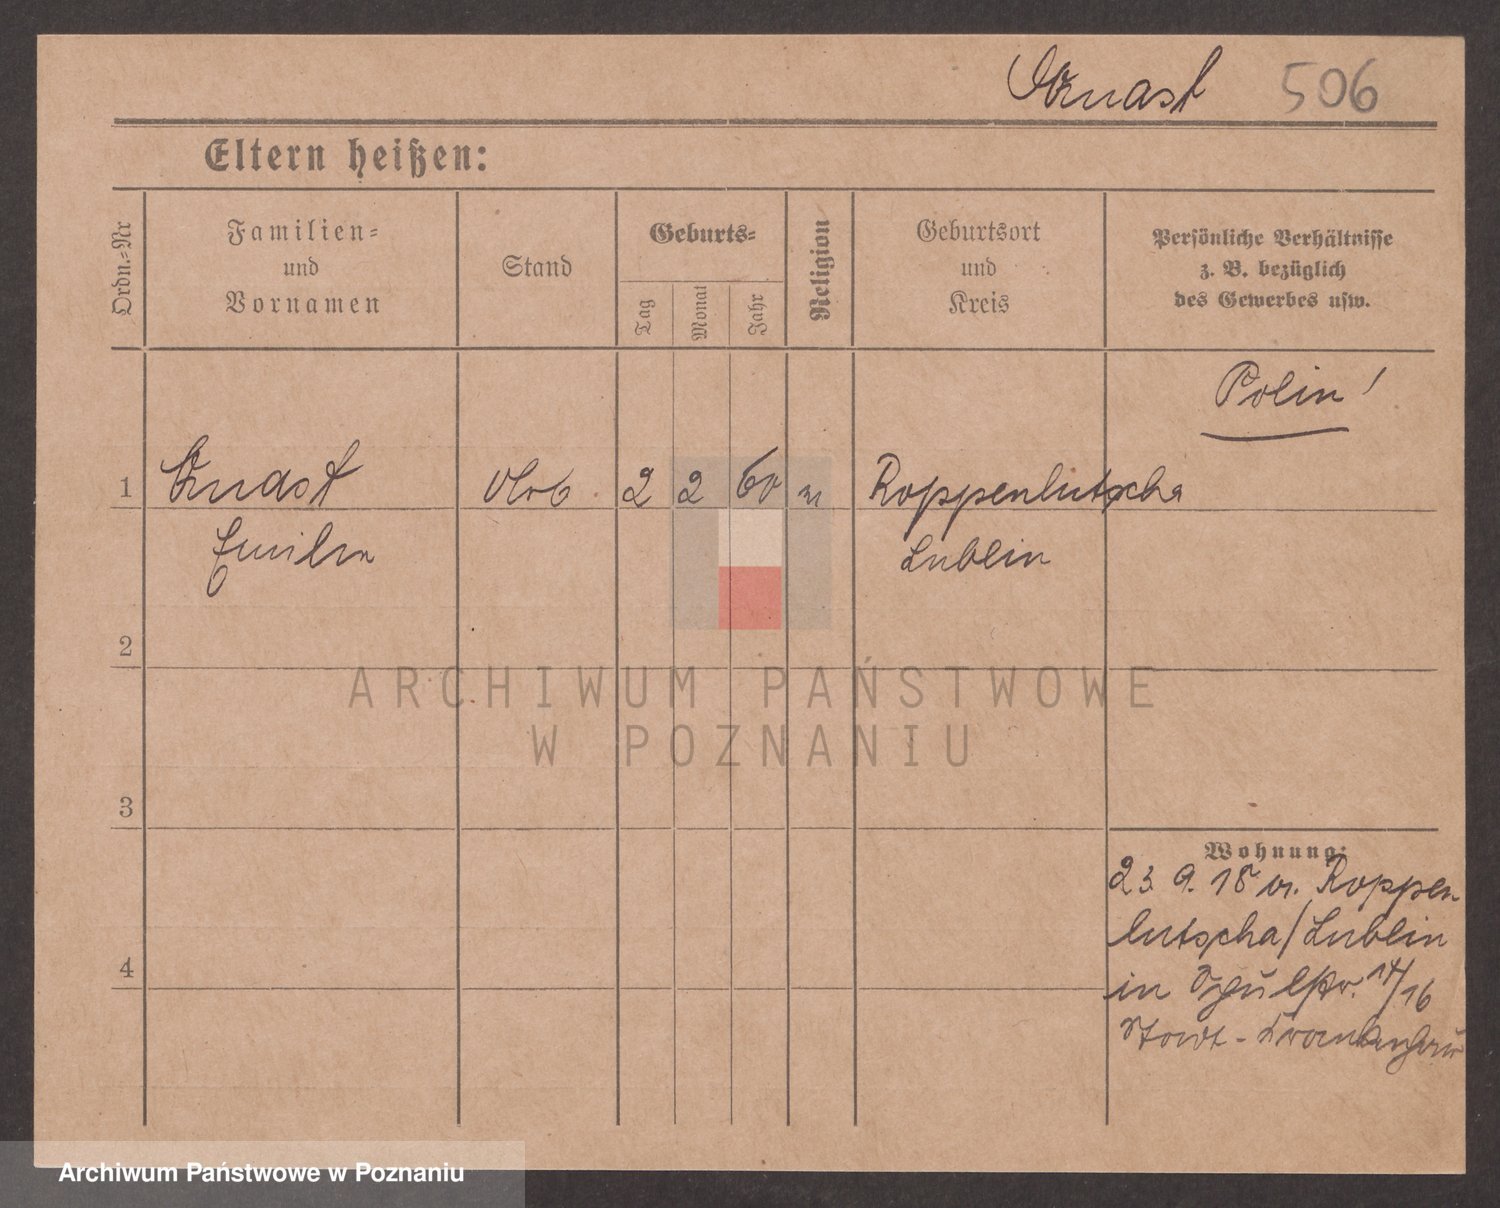 Knast 506
Eltern heißen:
Ordn.-Nr
Familien-
und
Vornamen
Stand
Geburts-
Tag
Monat
Jahr
Religion
Geburtsort
und
Kreis
Persönliche Verhältnisse
z. B. bezüglich
des Gewerbes usw.
Polin!
1 Knast 2 2 60 Roppenlutscha
Emilie Lublin
2
3
4
Wohnung:
23. 9. 18 v. Roppen
lutscha/Lublin
in 14/16
Stadt-Krankenhaus
ARCHIWUM PAŃSTWOWE
W POZNANIU
Archiwum Państwowe w Poznaniu